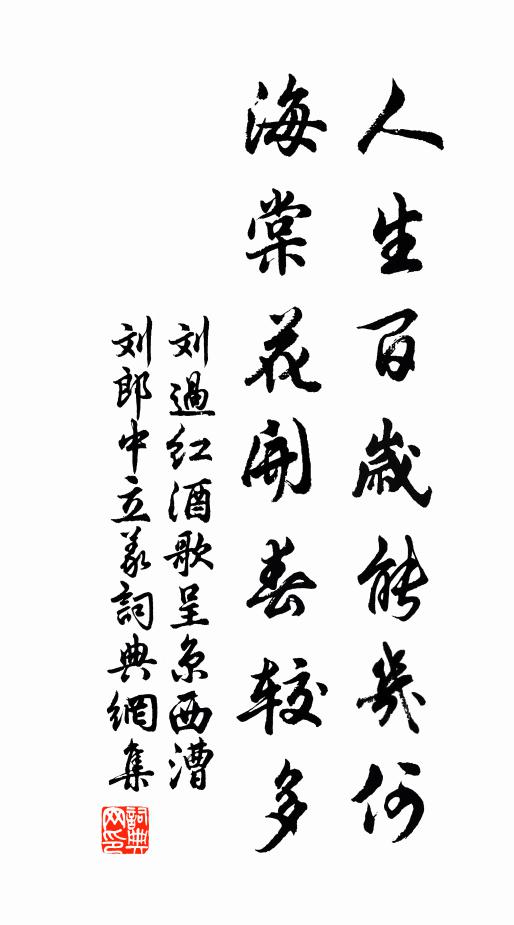 人生百歲能幾何
海棠花開春較多
刘過红酒歌呈京西漕
刘郎中立义詞典網集
詞典网印